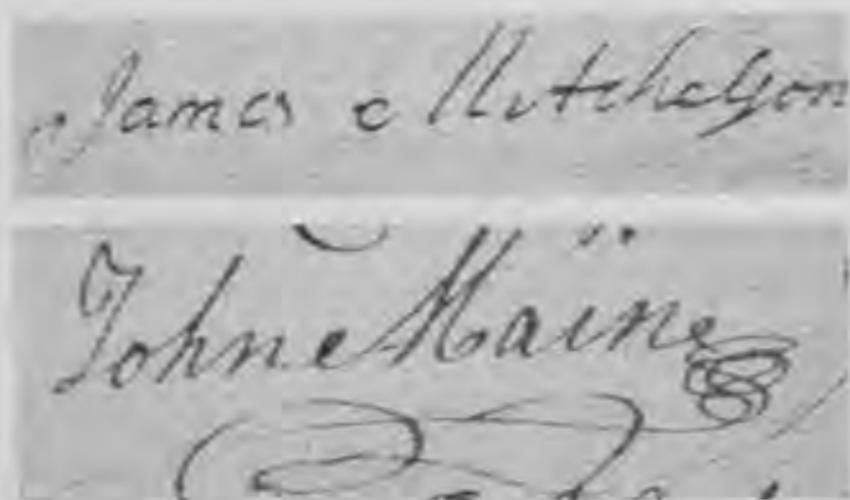 James Mitchelson
John Maine